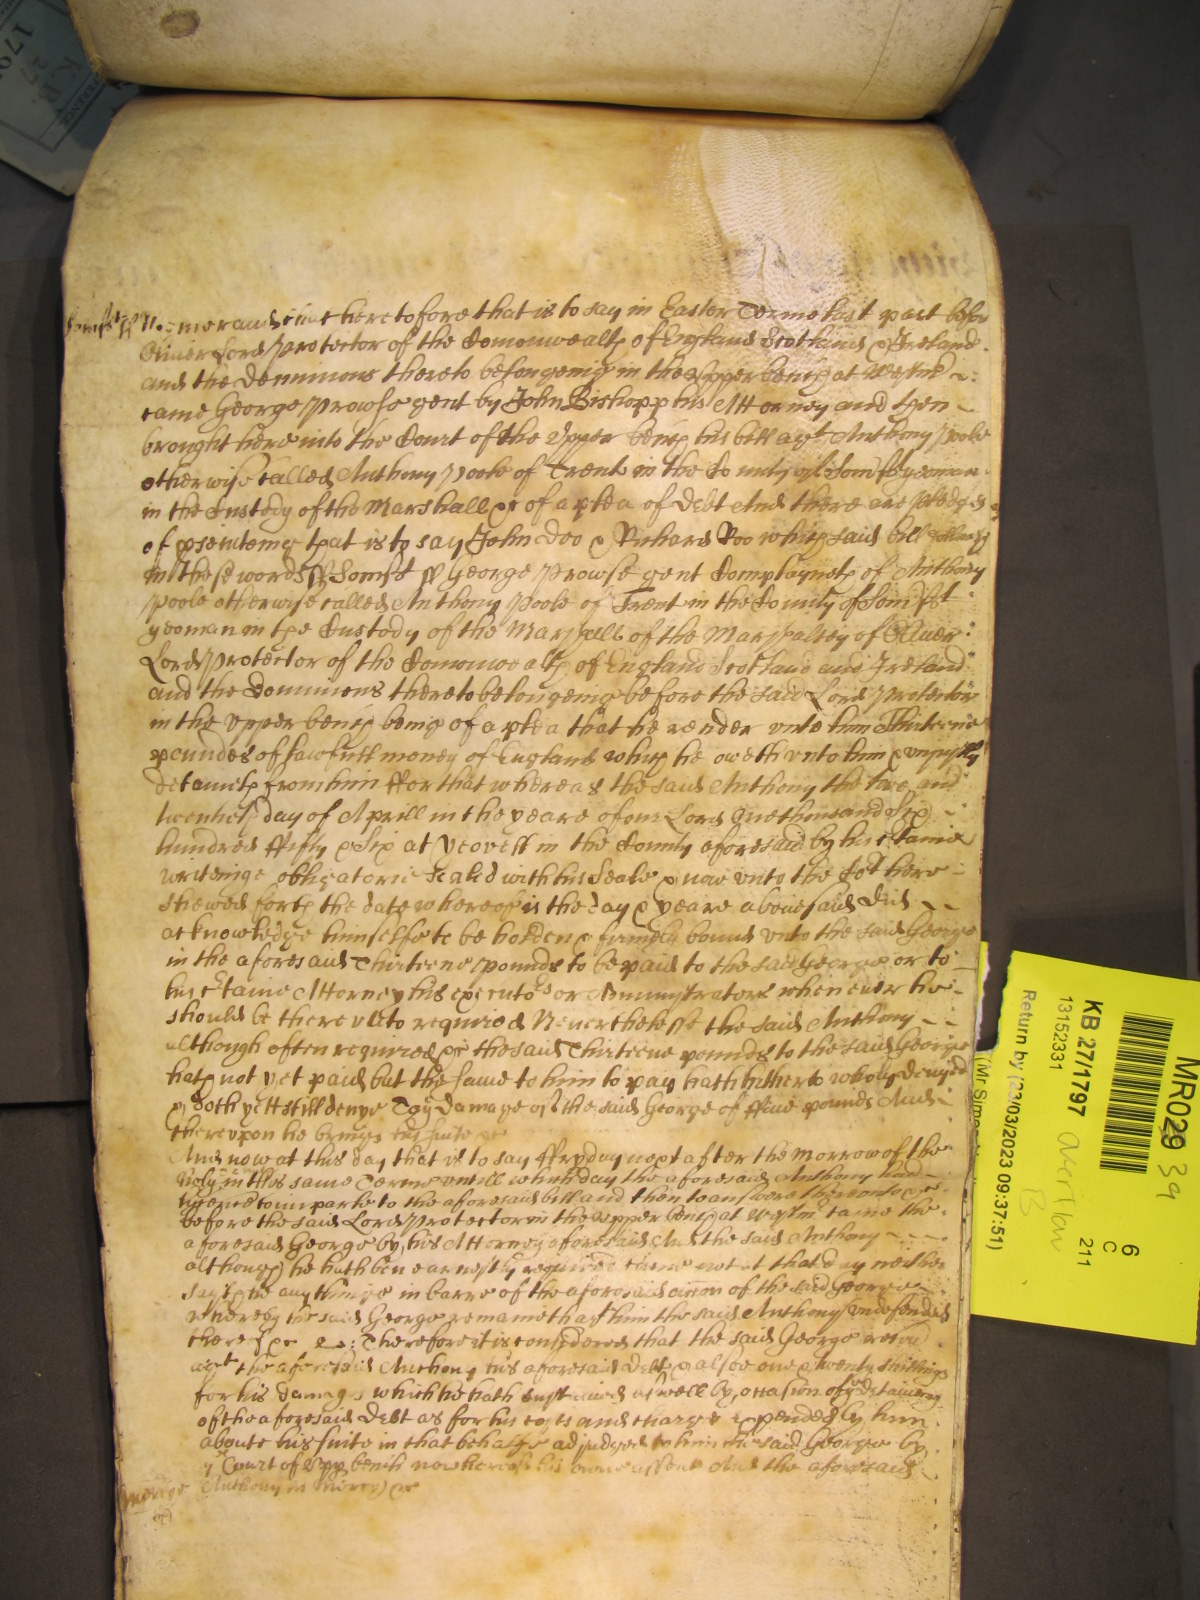 Somst ss Memorand that heretofore that is to say in Easter Terme last past before
Oliver Lord Protector of the Comonwealth of England Scotland & Ireland
and the Dominions thereto belongeing in the upper bench at Westm
came George Prowse gent by John Bishopp his Attorney and then
brought here into the Court of the Upper bench his bill agt Anthony Poole
otherwise called Anthony Poole of Trent in the County of Somst yeoman
in the Custody of the Marshall &c of a plea of debt And there are pledges
of psecuteing that is to say John Doo & Richard Roo which said bill followes
in these words ss Somst ss George Prowse gent Complayneth of Anthony
Poole otherwise called Anthony Poole of Trent in the County of Somst
yeoman in the Custody of the Marshall of the Marshalsey of Oliver
Lord Protector of the Comonwealth of England Scotland and Ireland
and the Dominions thereto belongeing before the said Lord Protector
in the upper bench being of a plea that he render unto him Thirteene
poundes of lawfull money of England which he oweth unto him & unjustly
detaineth from him ffor that whereas the said Anthony the two and
twentieth day of Aprill in the yeare of our Lord One thousand Six
hundred ffifty & Six at Yeovell in the County aforesaid by his certaine
writeinge obligatorie Sealed with his Seale & now unto the Cot here
shewed forth the date whereof is the day & yeare abovesaid did
acknowledge himselfe to be holden & firmely bound unto the said George
in the aforesaid Thirteene pounds to be paid to the said George or to
his ctaine Attorney his executors or Administrators whenever hee
should be thereunto required Neverthelesse the said Anthony
although often required &c the said Thirteene pounds to the said George
hath not yet paid but the same to him to pay hath hitherto wholy denyed
& doth yett still denye To ye Damage of the said George of ffive pounds And
thereupon he brings his suite &c
And now at this day that is to say ffryday next after the morrow of the
holy in this same Terme untill which day the aforesaid Anthony had
licence to imparle to the aforesaid bill and then to answere thereunto &c
before the said Lord Protector in the upper bench at Westm came the
aforesaid George by his Attorney aforesaid And the said Anthony
although he hath ben earnestly required came not at that day neither
sayth he any thinge in barre of the aforesaid accon of the said George
whereby the said George remaineth agt him the said Anthony undefended
therein &c &c: Therefore it is considered that the said George recou
agt the aforesaid Anthony his aforesaid Debt & alsoe one & twenty shillings
for his damages which he hath susteined as well by occasion of ye detaineing
of the aforesaid Debt as for his costs and charges expended by him
aboute his suite in that behalfe adjudged to him the said George by
ye Court of Upp bench now here of his owne assent And the aforesaid
Anthony in mercy &c
mercye
MR029 39
6
C
211
KB 27/1797
13152331
Overflow
B
Return by (23/03/2023 09:37:51)